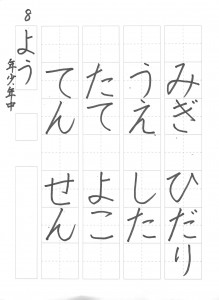 みぎ ひだり
うえ した
たて よこ
てん せん
8 よう
年少、年中